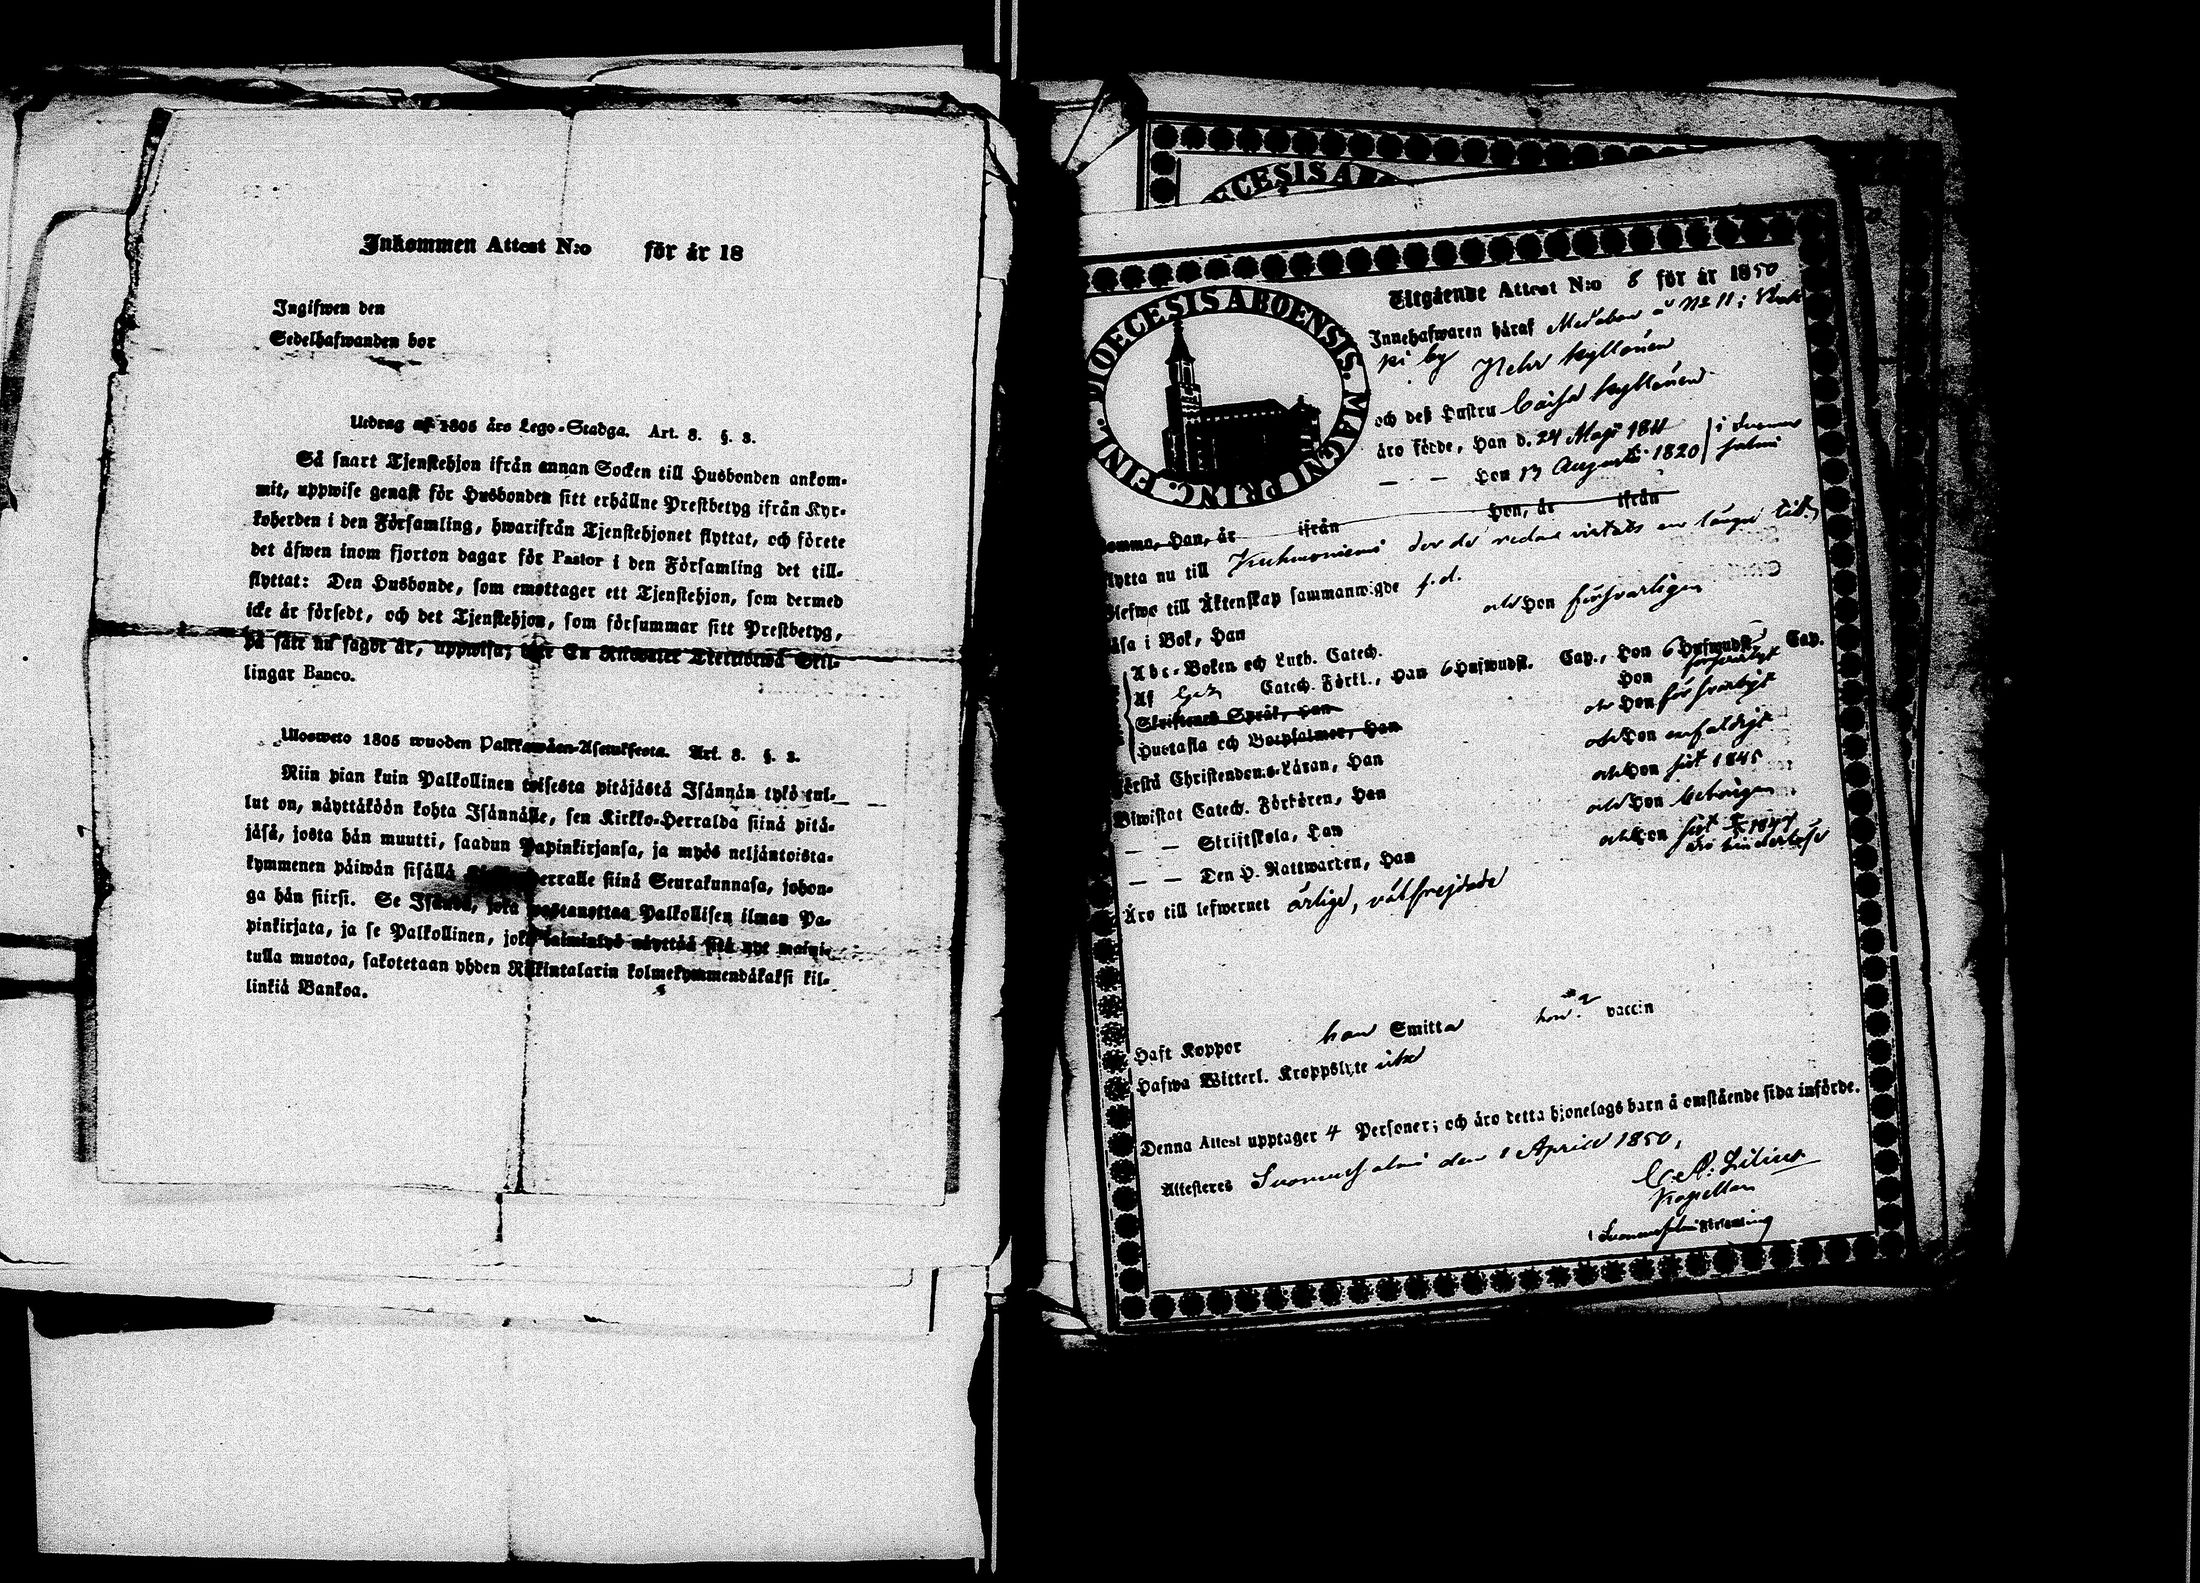 Inkommen Attest N:o för år 18
Ingifwen den
Sedelhafwanden bor
Utdrag af 1805 års Lego-Stadga. Art. 8. §. 3.
Så snart Tjenstehjon ifrån annan Socken till Husbonden ankom-
mit, uppwise genast för Husbonden sitt erhållne Prestbetyg ifrån Kyr-
koherden i den Församling, hwarifrån Tjenstehjonet flyttat, och förete
det äfwen inom fjorton dagar för Pastor i den Församling det till-
flyttat: Den Husbonde, som emottager ett Tjenstehjon, som dermed
icke är försedt, och det Tjenstehjon, som försummar sitt Prestbetyg,
på sätt nu sagdt är, uppwisa; En Skil-
lingar Banco.
Ulosweto 1805 wuoden Palkkawäen-Asetuksesta. Art. 8. §. 3.
Niin pian kuin Palkollinen toisesta pitäjästä Isännän tykö tul-
lut on, näyttäköön kohta Isännälle, sen Kirkko-Herralda siinä pitä-
jäsä, josta hän muutti, saadun Papinkirjansa, ja myös neljäntoista-
kymmenen päiwän sisällä herralle siinä Seurakunnasa, johon-
ga hän siirsi. Se Isändä, joka wastanottaa Palkollisen ilman Pa-
pinkirjata, ja se Palkollinen, joka laiminlyö näyttää sitä nyt maini-
tulla muotoa, sakotetaan yhden Riikintalarin kolmekymmendäkaksi kil-
linkiä Bankoa.
DIOECESIS ABOENSIS. MAGNI PRINC. FINL.
ECESIS AB
Utgående Attest N:o 8 för år 1850
Innehafwaren häraf å No 11 i
ki by Kyllönen
och deß Hustru Caisa Kyllönen
äro födde, Han d. 24 Maji 1811 i Suomus
— — Hon 13 Augusti 1820 salmi
omma, Han, år ifrån Hon, år ifrån
lytta nu till Kuhmoniemi der de redan vistats en längre tid
Blefwo till Äktenskap sammanwigde
äsa i Bok, Han och Hon försvarligen
Abc-Boken och Luth. Catech.
Af Catech. Förkl., Han 6 Hufwudst. Cap., Hon 6 Hufwudst. Cap.
Skriftenes Språk, Han Hon försvarligt
Hustafla och Botpsalmer, Han och Hon försvarligt
Förstå Christendoms-Läran, Han och Hon enfaldigt
Biwistat Catech. Förhören, Han och Hon sist 1845
— — Skriftskola, Han och Hon
— — Den H. Nattwarden, Han och Hon sist
Äro till lefwernet ärlige, välfrejdade
Haft Koppor han Smitta hon vaccin
Hafwa Witterl. Kroppslyte utan
Denna Attest upptager 4 Personer; och äro detta hjonelags barn å omstående sida införde.
Attesteres Suomussalmi den 1 April 1850,
C. A. Zilius
Kapellan
i Suomussalmi Församling